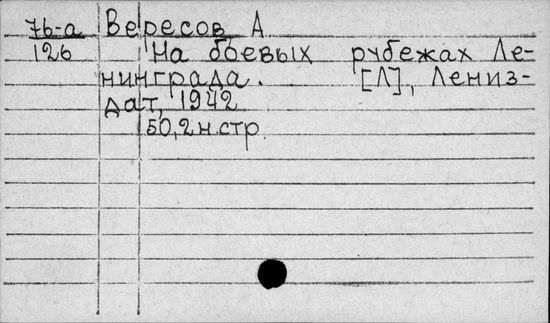 76-а Вересов А
126 На боевых рубежах Ле-
нинграда. [Л], Лениз-
дат, 1942.
50,2н.стр.